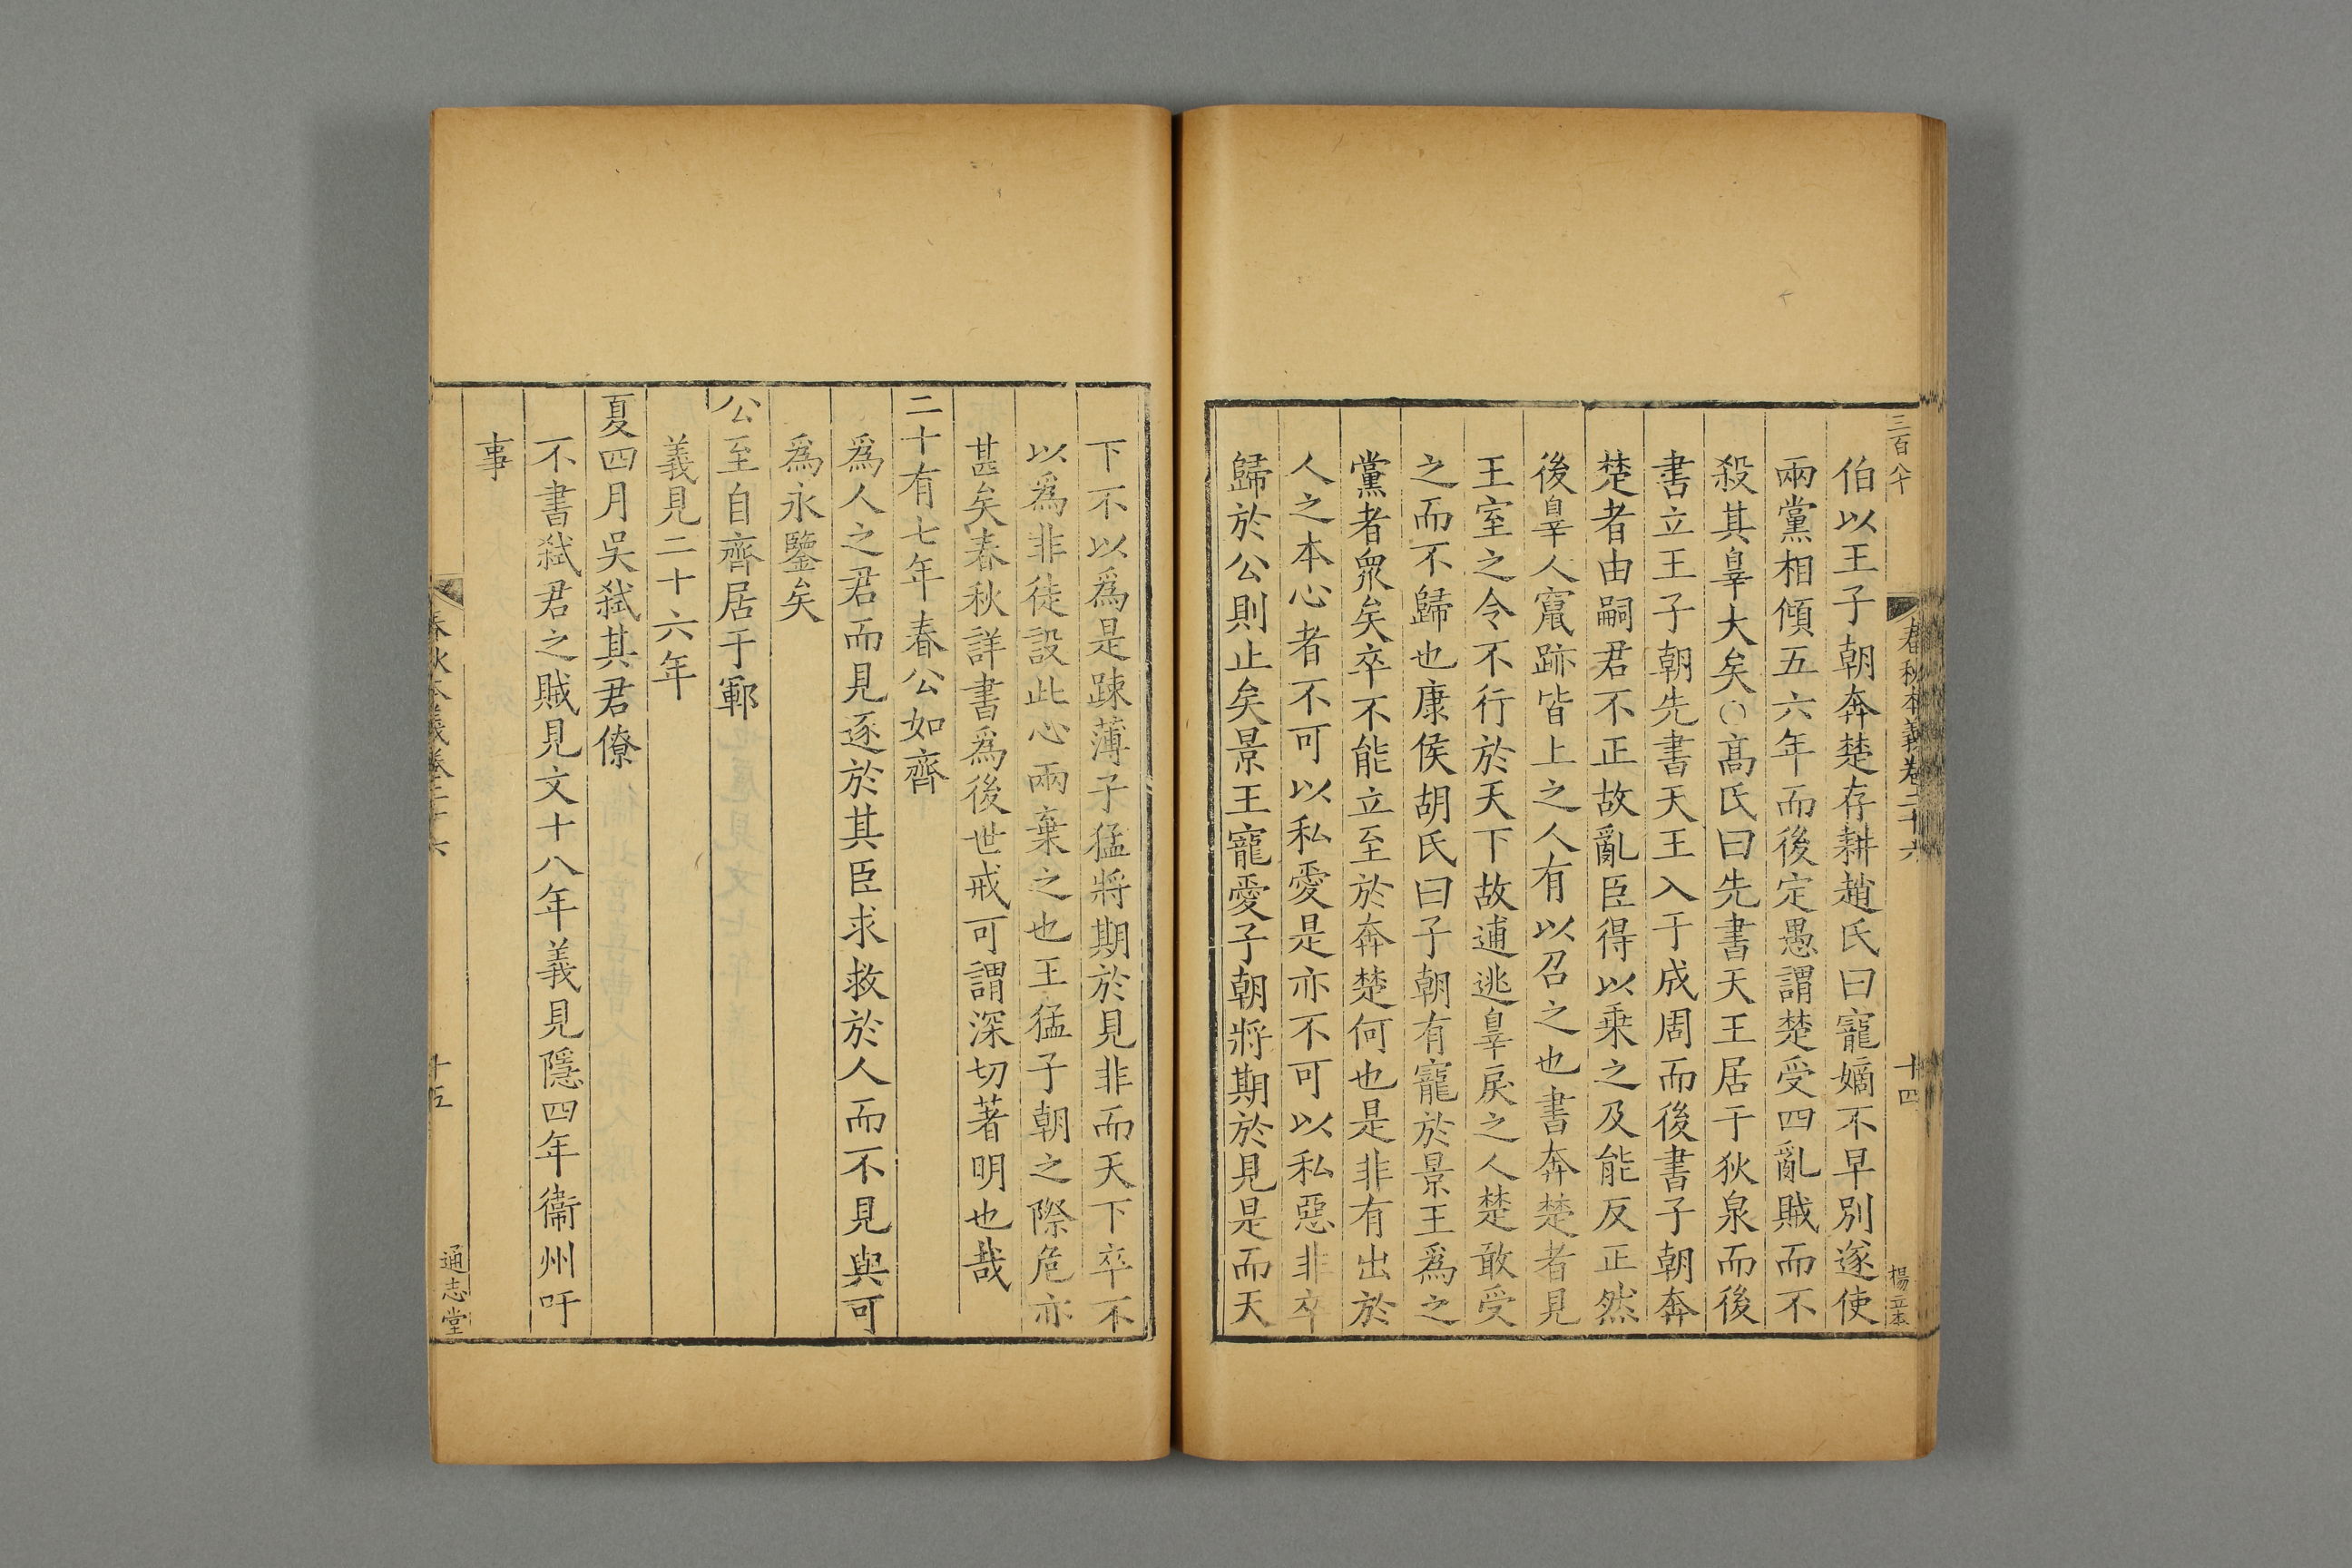 三百八十
春秋本義卷二十六
十四
楊立本
伯以王子朝奔楚存耕趙氏曰寵嫡不早別遂使
兩黨相傾五六年而後定愚謂楚受四亂賊而不
殺其辠大矣○髙氏曰先書天王居于狄泉而後
書立王子朝先書天王入于成周而後書子朝奔
楚者由嗣君不正故亂臣得以乗之及能反正然
後辠人竄跡皆上之人有以召之也書奔楚者見
王室之令不行於天下故逋逃辠戾之人楚敢受
之而不歸也康侯胡氏曰子朝有寵於景王爲之
黨者衆矣卒不能立至於奔楚何也是非有出於
人之本心者不可以私愛是亦不可以私惡非卒
歸於公則止矣景王寵愛子朝將期於見是而天
下不以爲是踈薄子猛將期於見非而天下卒不
以爲非徒設此心兩棄之也王猛子朝之際危亦
甚矣春秋詳書爲後世戒可謂深切著明也哉
二十有七年春公如齊
爲人之君而見逐於其臣求救於人而不見與可
爲永鑒矣
公至自齊居于鄆
義見二十六年
夏四月吳弑其君僚
不書弑君之賊見文十八年義見隱四年衞州吁
事
春秋本義卷二十六
十五
通志堂